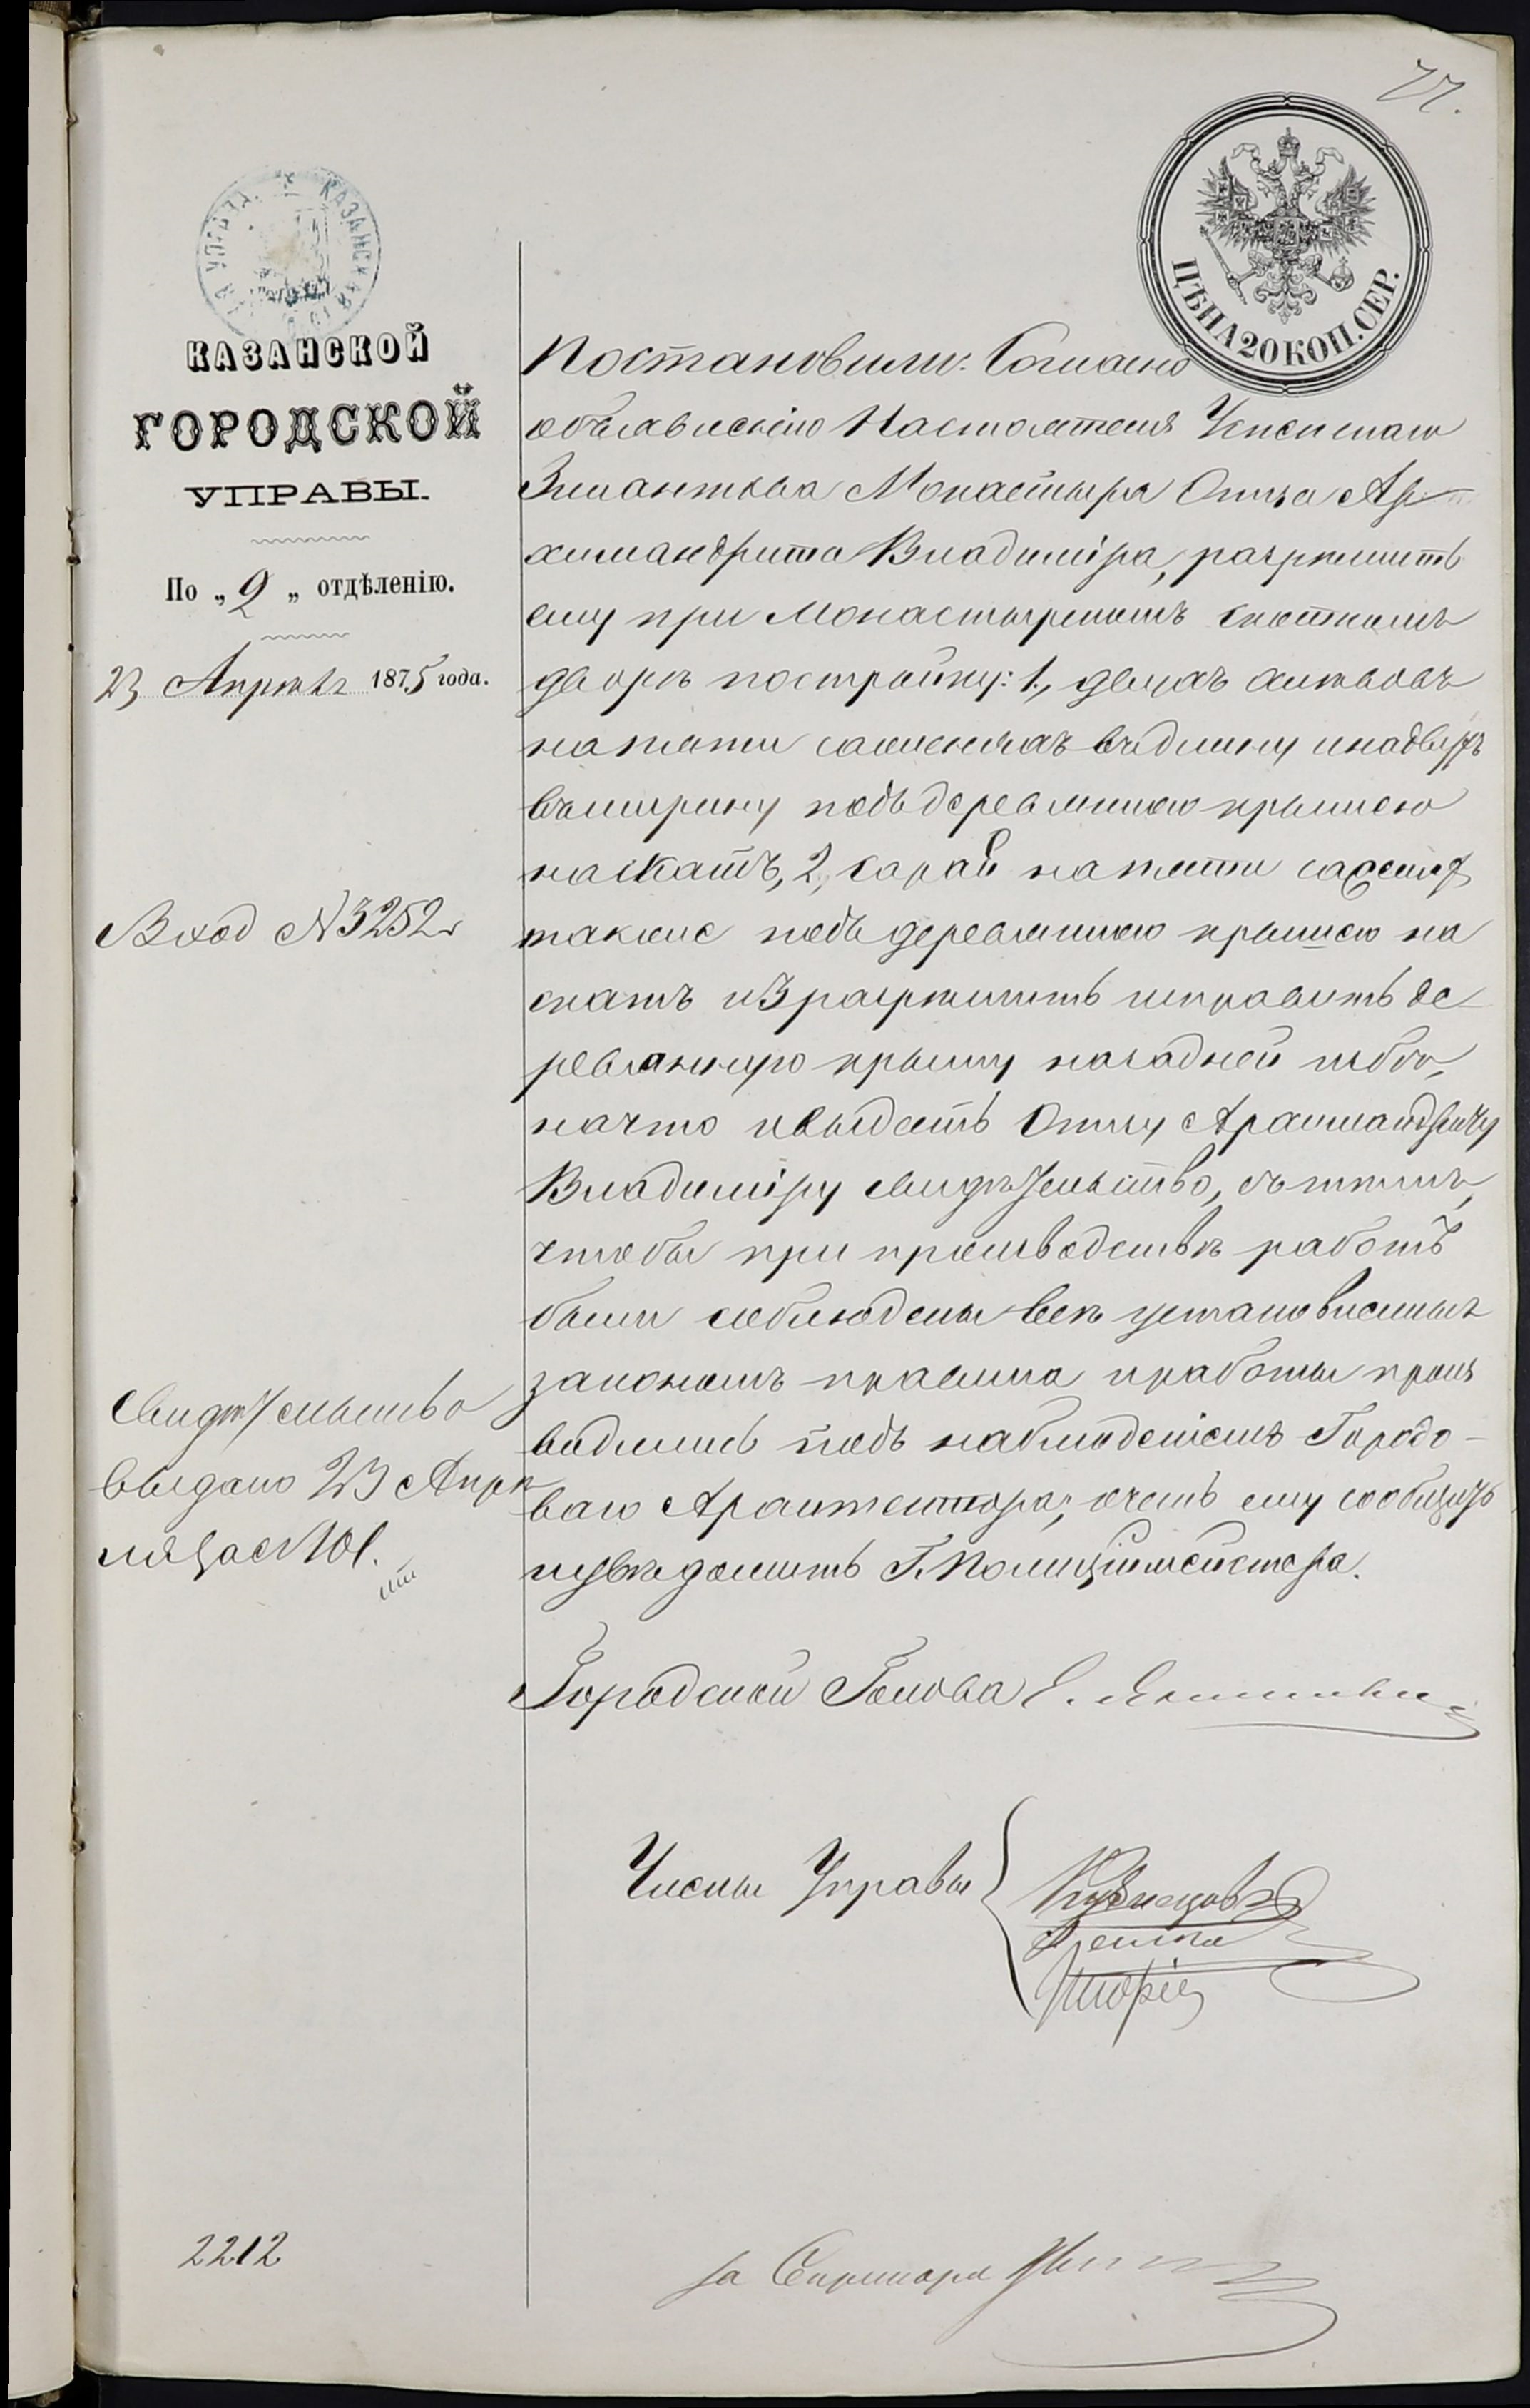 77.
КАЗАНСКАЯ УПРАВА
ЦѢНА 20 КОП. СЕР.
КАЗАНСКОЙ
ГОРОДСКОЙ
УПРАВЫ.
По „2„ отдѣленію.
23 Апрѣля 1875 года.
Вход №3252
Свидѣтельство
выдано 23 Апрѣ
ля за №101.
2212
Постановили: Согласно
объявленію Настоятеля Успенскаго
Зилантова Монастыря Отца Ар-
химандрита Владиміра, разрѣшить
ему при Монастырскомъ скотномъ
дворѣ постройку: 1, двухъ хлѣвовъ
на пяти саженяхъ въ длину и на двухъ
въ ширину подъ деревянною крышею
на скатъ, 2, сарай на пяти саженях
также подъ деревянною крышею на
скатъ и 3 разрѣшить исправить де
ревянную крышу на задней избѣ,
на что и выдать Отцу Архимандриту
Владиміру свидѣтельство, съ тѣмъ,
чтобы при производствѣ работъ
были соблюдены всѣ установленныя
закономъ правила и работы произ
водились подъ наблюденіемъ Городо-
ваго Архитектора, о чемъ ему сообщить
и увѣдомить Г. Полиціймейстера.
Городской Голова Е.
Члены Управы
Кузнецовъ
за Секретаря